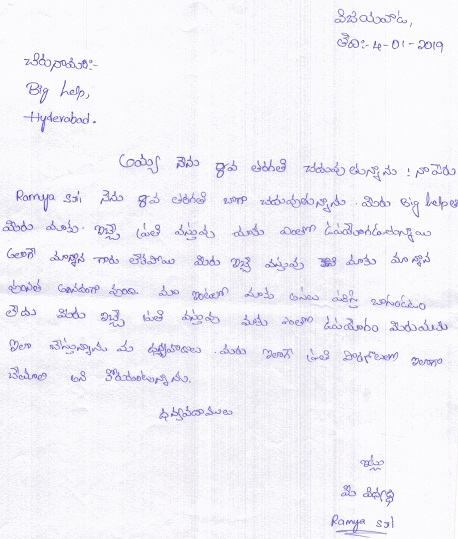 విజయవాడ,
తేది:- 4-01-2019
చిరునామా:-
Big help,
Hyderabad.
అయ్య నేను 8వ తరగతి చదువు తున్నాను ! నా పేరు
Ramya sri నేను 8వ తరగతి బాగా చదువుతున్నాను. మీరు Big help
మీరు మాకు ఇచ్చే ప్రతి వస్తువు మాకు ఎంతో ఉపయోగపడుతున్నాయి
అలాగే మా నాన్న గారు లేకపోయి మీరు ఇచ్చే వస్తువు మాకు మా నాన్న
వుంది. మా ఇంటిలో మాకు అసలు బాగుండటం
లేదు మీరు ఇచ్చే ప్రతి వస్తువు మాకు ఎంతో ఉపయోగం
ఇలా చేస్తున్నారు మీ ధన్యవాదాలు. మీరు ఇలాగే ప్రతి
చేయాలి అని కోరుకుంటున్నాను.
ధన్యవాదములు
ఇట్లు
మీ విద్యార్థి
Ramya sri